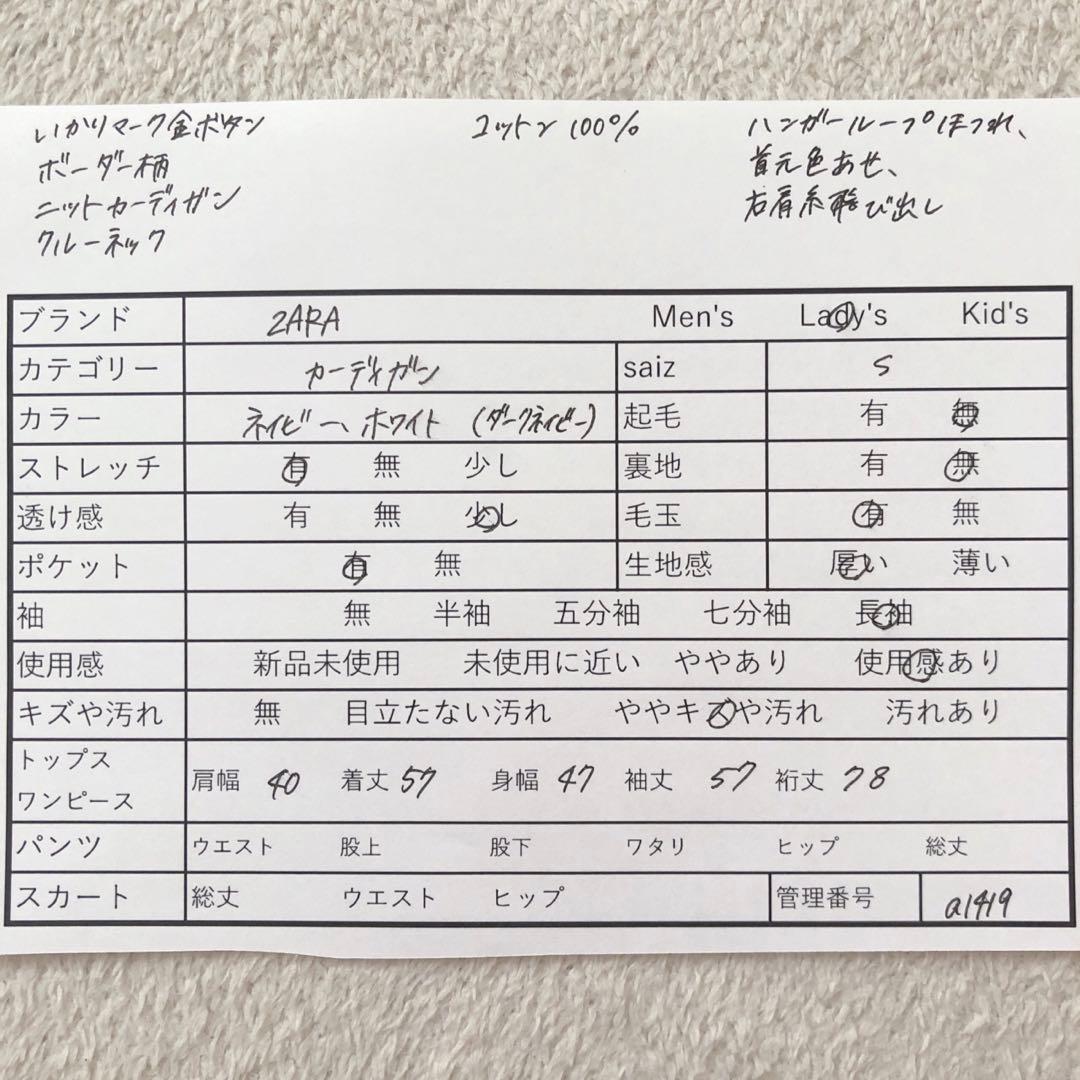 いかりマーク金ボタン
ボーダー柄
ニットカーディガン
クルーネック
コットン 100%
ハンガーループほつれ、
首元色あせ、
右肩糸飛び出し
ブランド ZARA Men's Lady's Kid's
カテゴリー カーディガン saiz S
カラー ネイビー、ホワイト (ダークネイビー) 起毛 有 無
ストレッチ 有 無 少し 裏地 有 無
透け感 有 無 少し 毛玉 有 無
ポケット 有 無 生地感 厚い 薄い
袖 無 半袖 五分袖 七分袖 長袖
使用感 新品未使用 未使用に近い ややあり 使用感あり
キズや汚れ 無 目立たない汚れ ややキズや汚れ 汚れあり
トップス
ワンピース 肩幅 40 着丈 57 身幅 47 袖丈 57 裄丈 78
パンツ ウエスト 股上 股下 ワタリ ヒップ 総丈
スカート 総丈 ウエスト ヒップ 管理番号 a1419